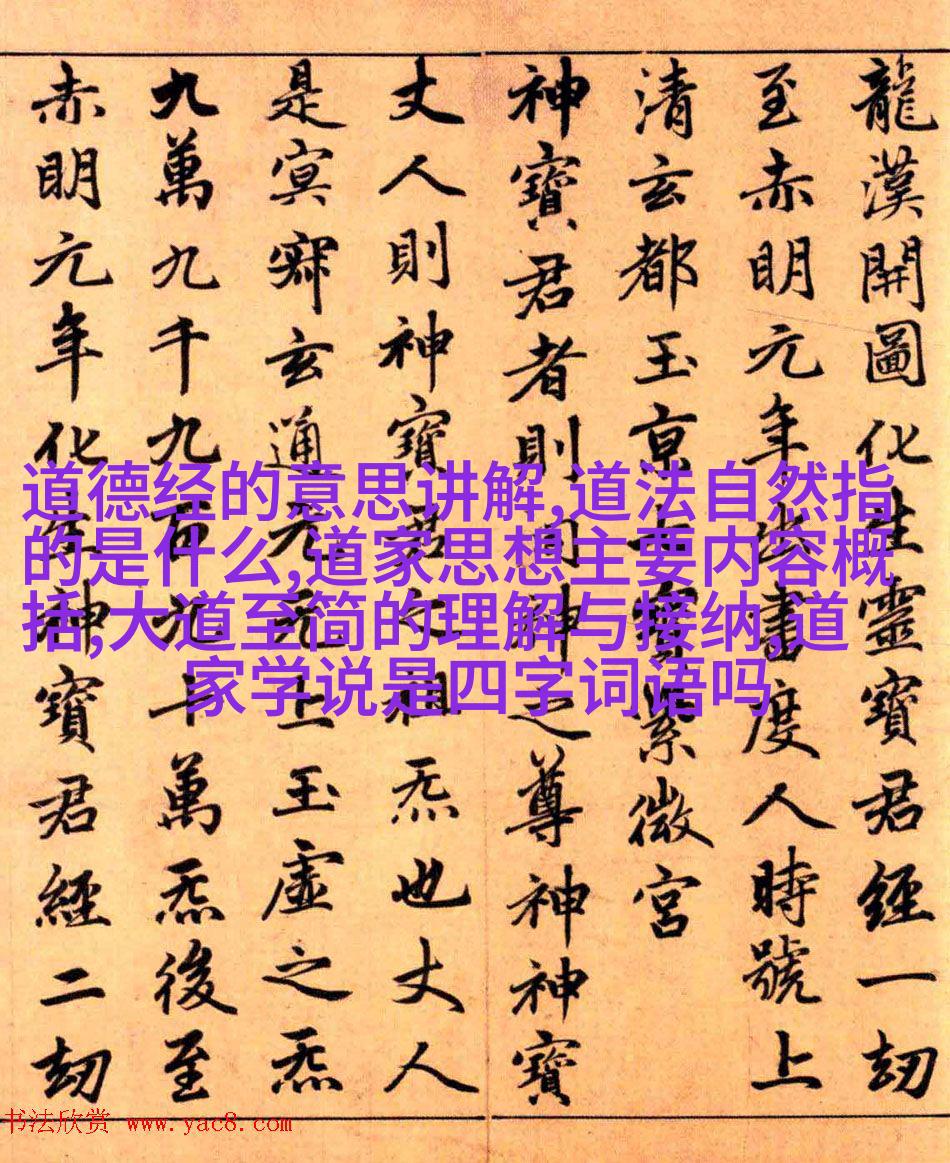 龍漢開圖化生靈寶君經一劫
至赤明元年出書度人時號上
清玄都玉京七寶紫微宮
神寶君者則洞神之尊神神寶
丈人則神寶君之祖炁也丈人
是冥寂玄通元无上玉虛之炁
九萬九千九百九十萬炁後至
赤明元年化生神寶君經二劫
道德经的意思讲解,道法自然指
的是什么,道家思想主要内容概
括,大道至简的理解与接纳,道
家学说是四字词语吗
书法欣赏 www.yac8.com